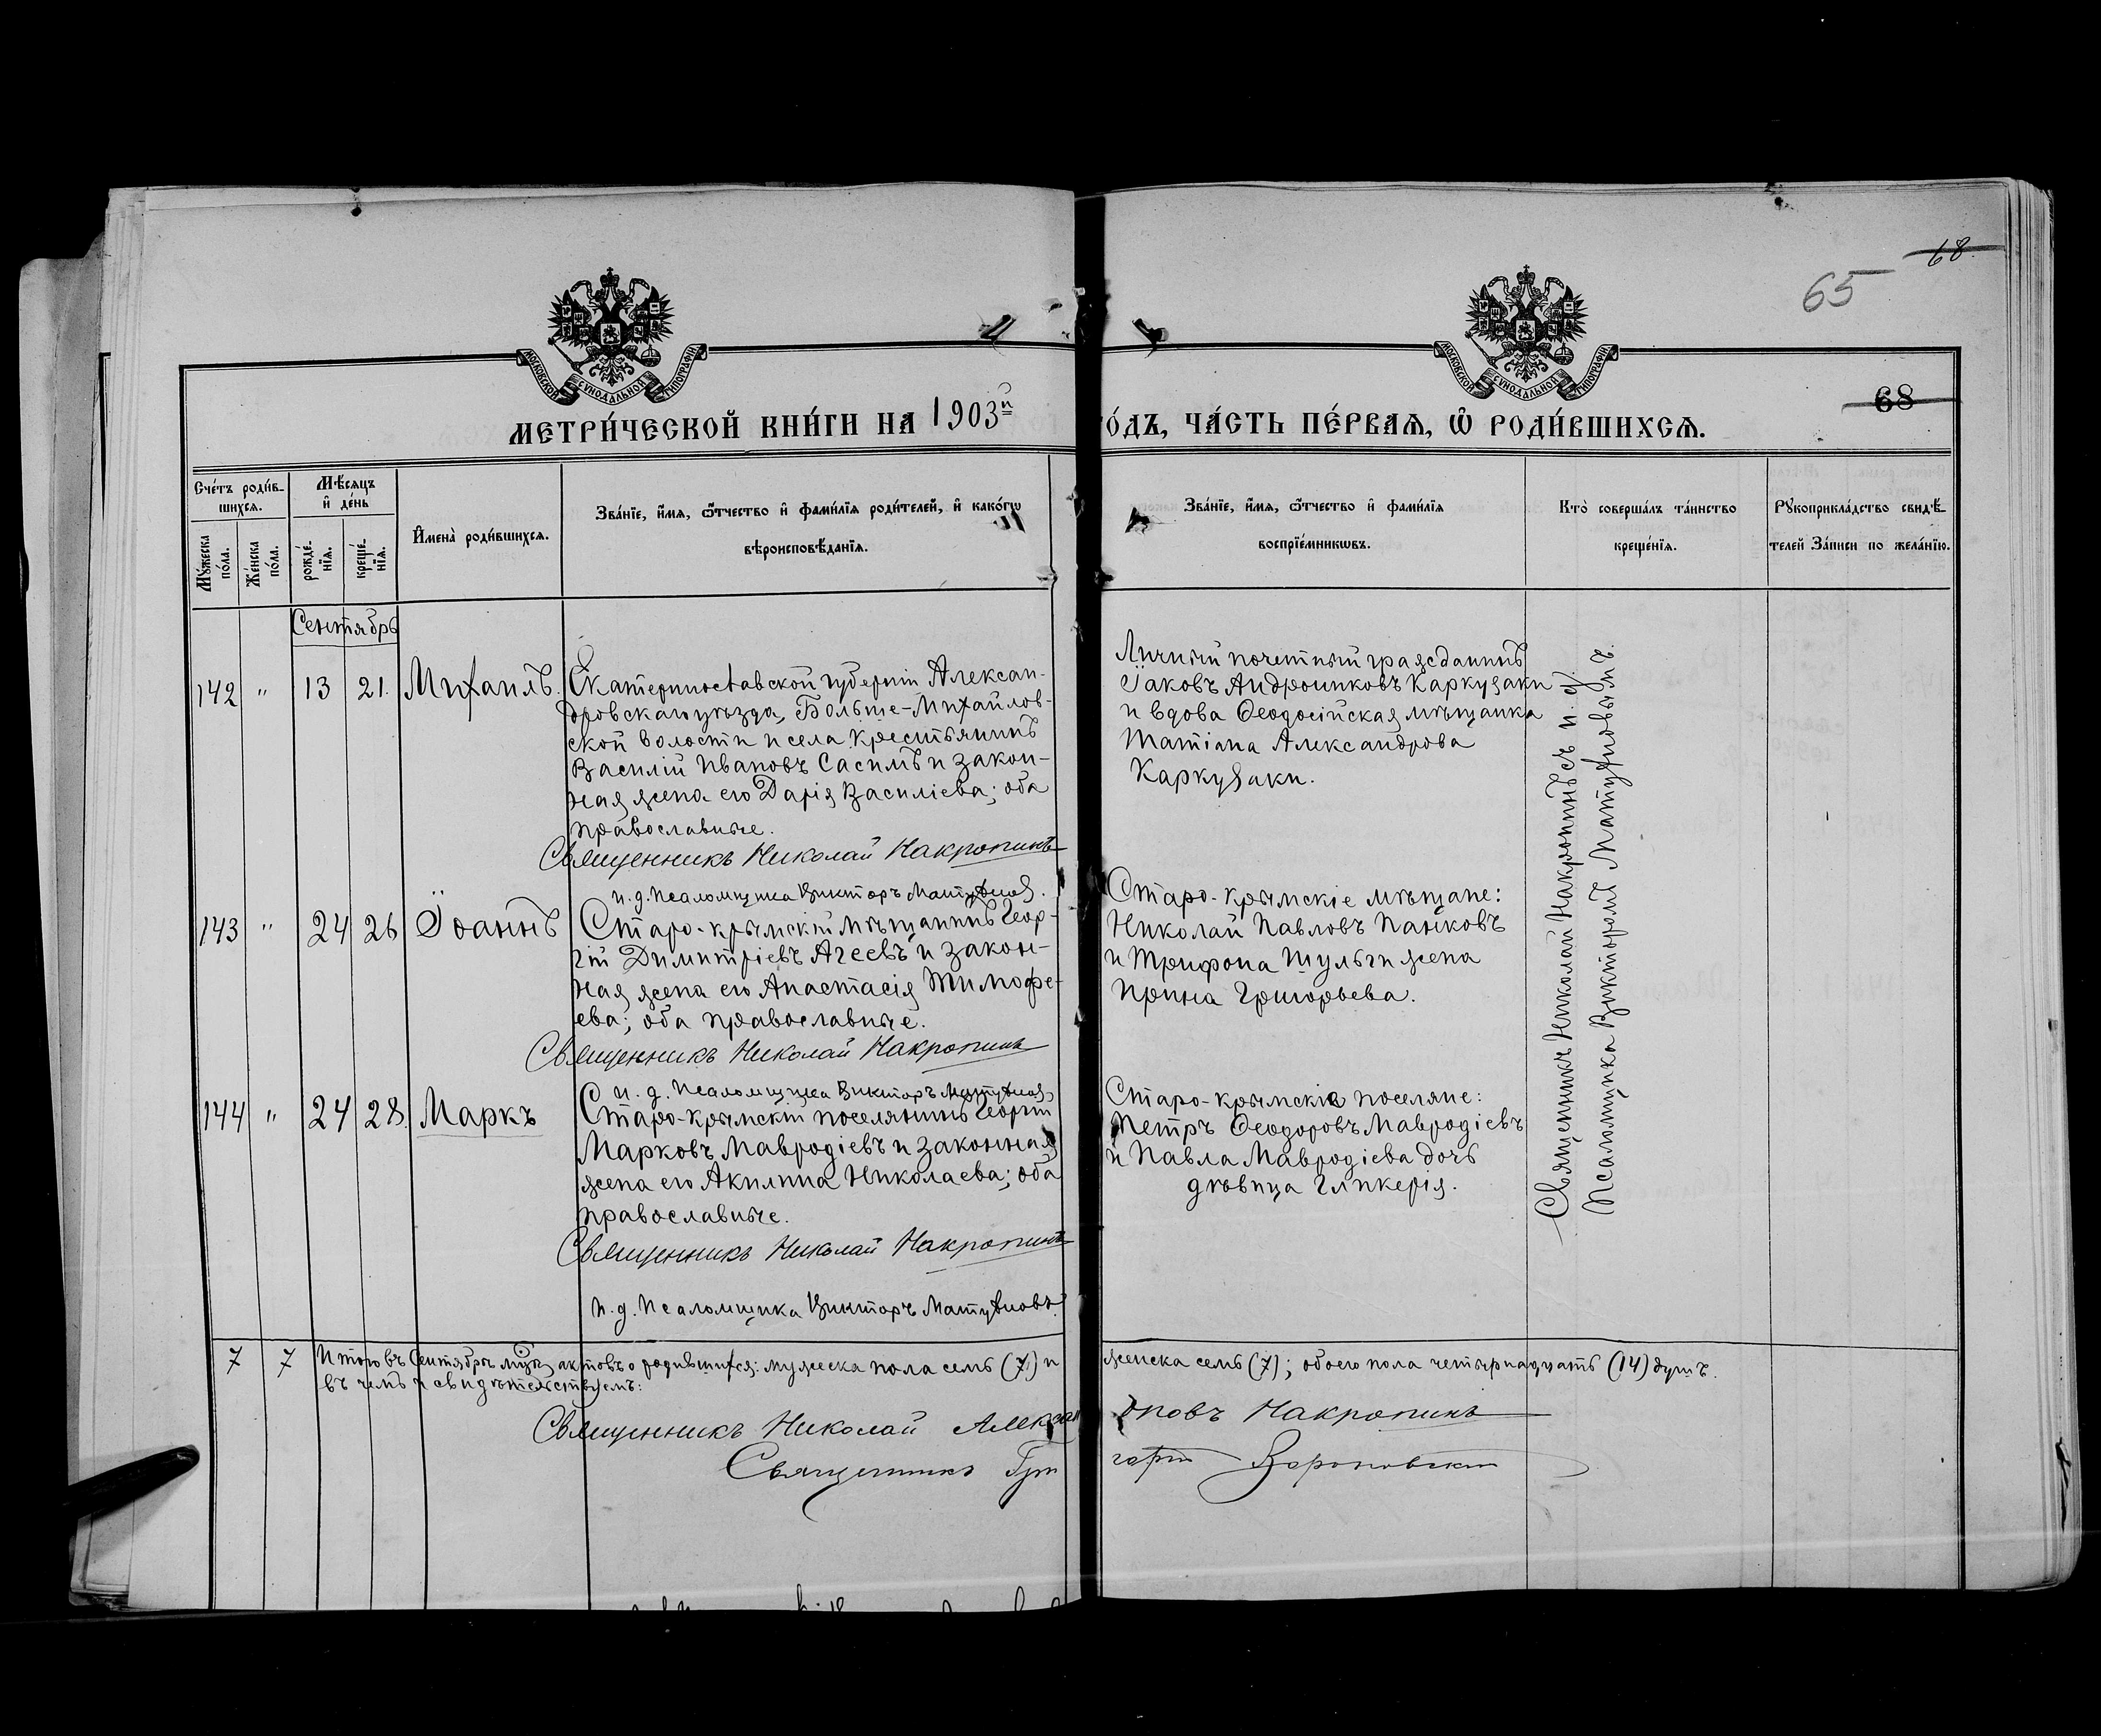 68
65
МОСКОВСКОЙ СѴНОДАЛЬНОЙ ТИПОГРАФІИ
МОСКОВСКОЙ СѴНОДАЛЬНОЙ ТИПОГРАФІИ
68
МЕТРИ́ЧЕСКОЙ КНИ́ГИ НА 1903й
О́ДЪ, ЧА́СТЬ ПЕ́РВАѦ, Ѽ РОДИ́ВШИХСѦ.
Сче́тъ роди́вшихсѧ.
Му́жеска по́ла.
Же́нска по́ла.
Мѣ́сѧцъ и҆ де́нь
рожде́нїѧ.
креще́нїѧ.
И҆мена̀ роди́вшихсѧ.
Зва́нїе, и҆́мѧ, ѻ҆́тчество и҆ фами́лїѧ роди́телей, и҆ како́гѡ
вѣроисповѣ́данїѧ.
Зва́нїе, и҆́мѧ, ѻ҆́тчество и҆ фами́лїѧ
воспрїе́мникѡвъ.
Кто̀ соверша́лъ та́инство
креще́нїѧ.
Рꙋкоприкла́дство свидѣ́-
телей За́писи по жела́нїю.
Сентябрь
142 " 13 21. Михаилъ.
Екатеринославской губерніи Алексан-
дровскаго уѣзда, Больше-Михайлов-
ской волости и села крестьянинъ
Василій Ивановъ Сасимъ и закон-
ная жена его Дарія Василіева; оба
православные.
Священникъ Николай Накропинъ
и. д. Псаломщика Викторъ Матуѣновъ.
Личный почетный гражданинъ
Іаковъ Андрониковъ Каркузаки
и вдова Ѳеодосійская мѣщанка
Татіана Александрова
Каркузаки.
143 " 24 26 Іоаннъ
Старо-крымскій мѣщанинъ Геор-
гій Димитріевъ Агеевъ и закон-
ная жена его Анастасія Тимофе-
ева; оба православные.
Священникъ Николай Накропинъ
и. д. Псаломщика Викторъ Матуѣновъ
Старо-крымскіе мѣщане:
Николай Павловъ Панковъ
и Трифона Шульги жена
Ирина Григорьева.
144 " 24 28. Маркъ
Старо-крымскій поселянинъ Георгій
Марковъ Мавродіевъ и законная
жена его Акилина Николаева; оба
православные.
Священникъ Николай Накропинъ
и. д. Псаломщика Викторъ Матуѣновъ
Старо-крымскіе поселяне:
Петръ Ѳеодоровъ Мавродіевъ
и Павла Мавродіева дочь
дѣвица Гликерія.
Священникъ Николай Накропинъ съ и. д.
Псаломщика Викторомъ Матуѣновымъ.
7 7 Итого въ Сентябрѣ мцѣ актовъ о родившихся: мужеска пола семь (7) и женска семь (7); обоего пола четырнадцать (14) душъ.
въ чемъ и свидѣтельствуемъ:
Священникъ Николай Александровъ Накропинъ
Священникъ Григорій Вороновскій